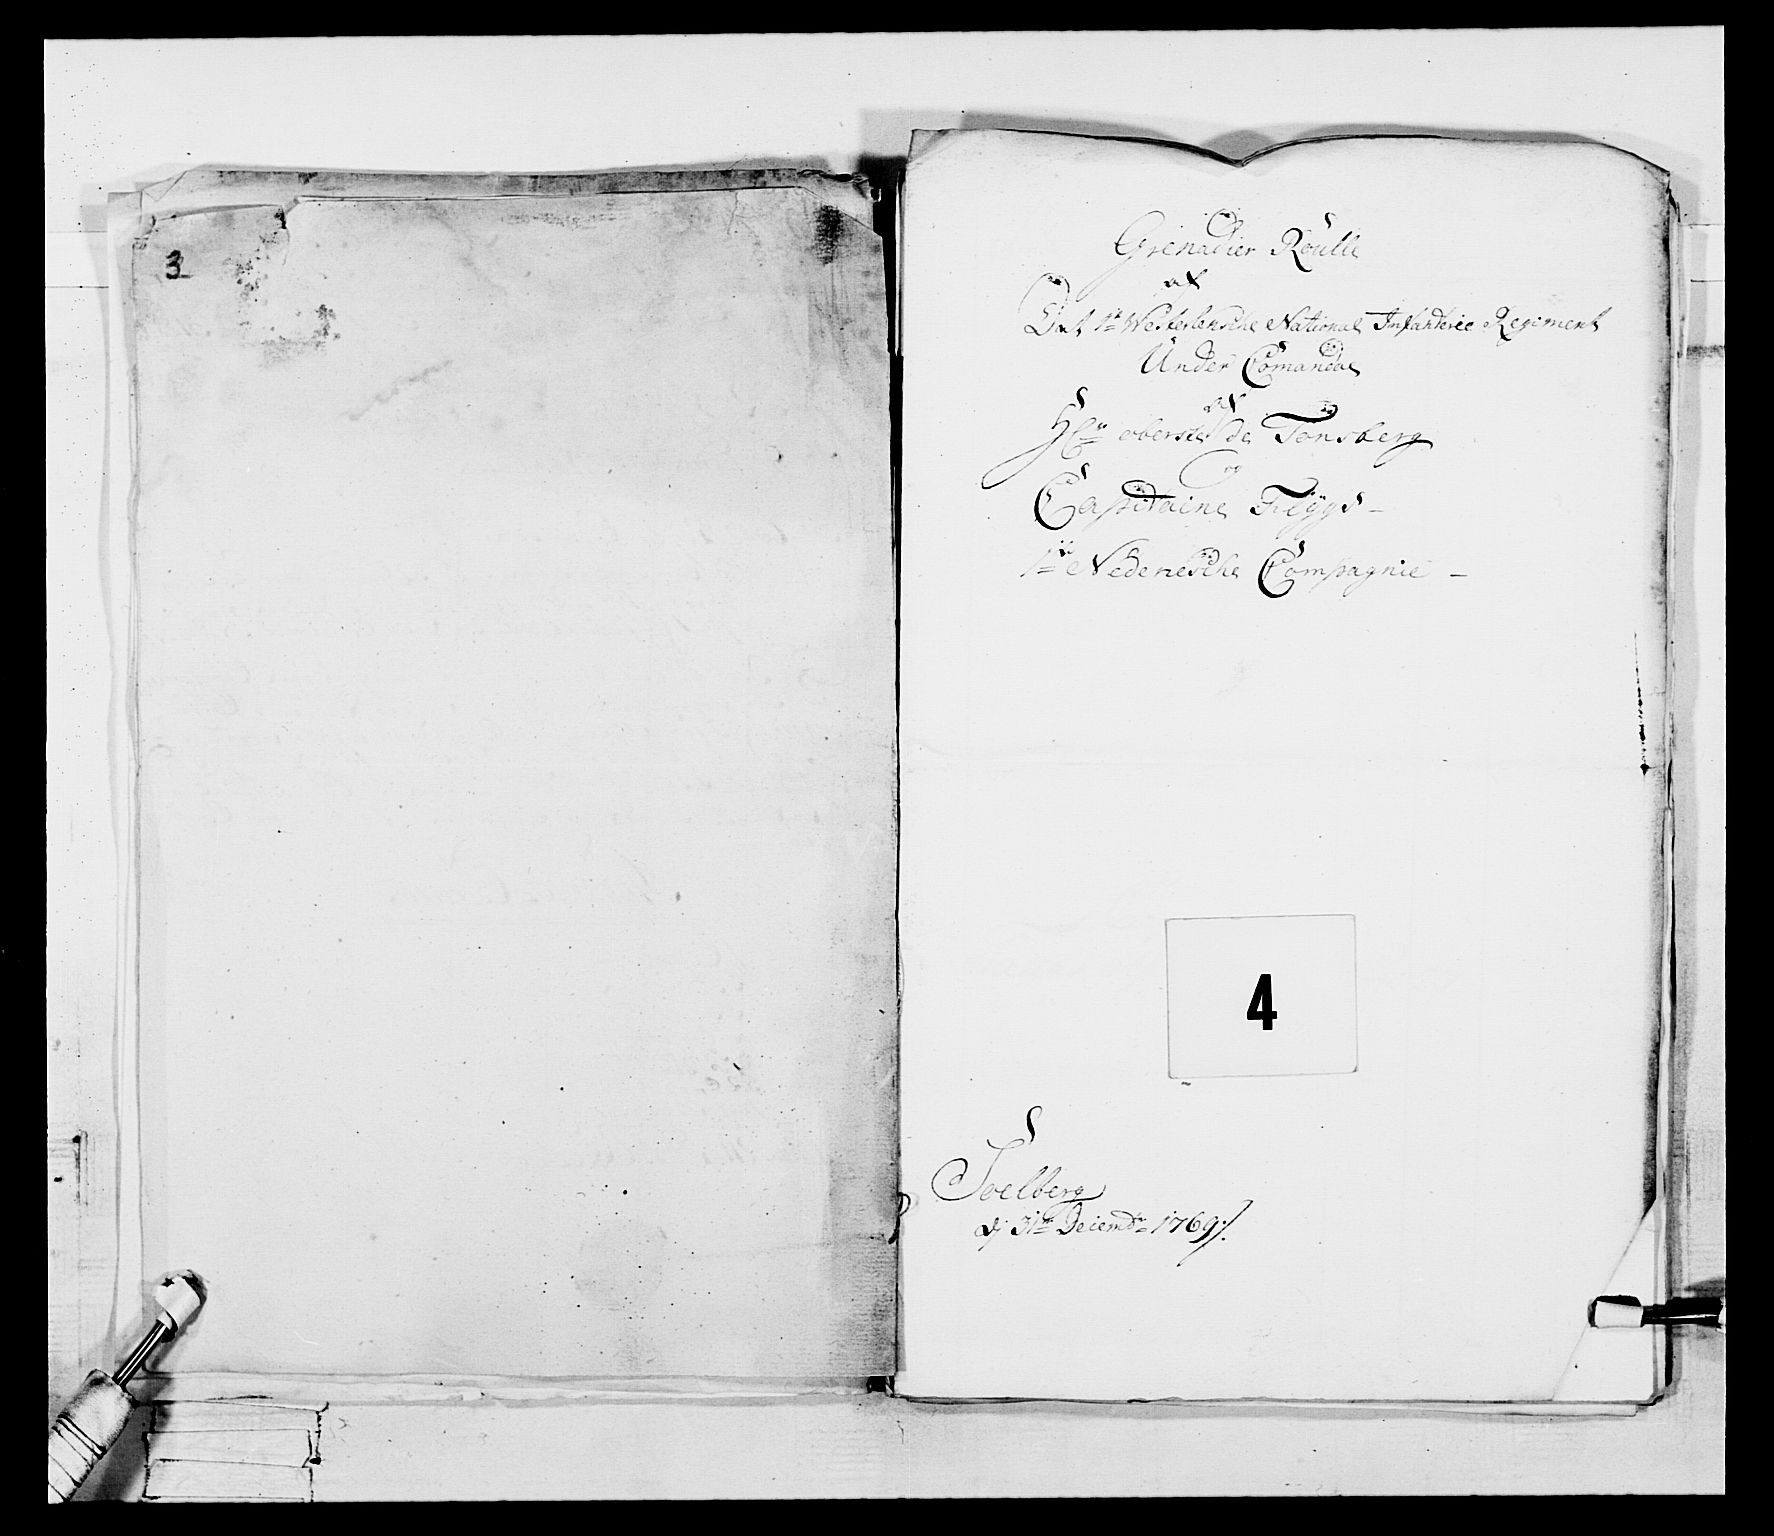 3
Grenadier Roulle
af
Det 1te Westerlensche National Infanterie Regiment
Under Comando
af
Hr oberste de Tonsberg
og
Capitaine
1te Nedenesche Compagnie -
4
Soelberg
dj 31te Decembr 1769 /.